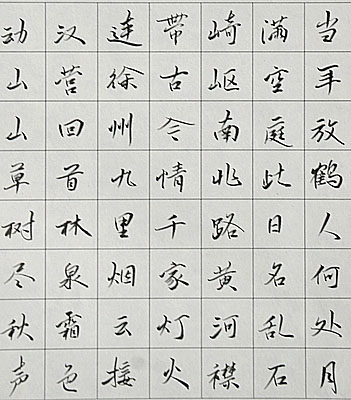 当年放鹤人何处月
满空庭此日名乱石
崎岖南北路黄河襟
带古今情千家灯火
連徐州九里烟云接
汉营回首林泉霜色
动山山草树尽秋声